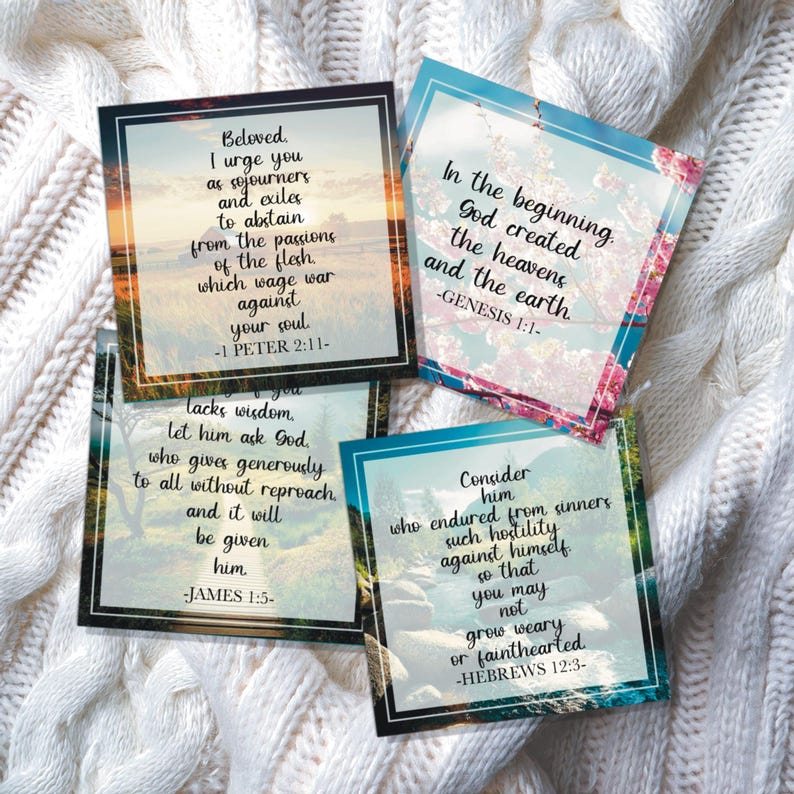 Beloved,
I urge you
as sojourners
and exiles
to abstain
from the passions
of the flesh,
which wage war
against
your soul.
-1 PETER 2:11-
In the beginning,
God created
the heavens
and the earth.
-GENESIS 1:1-
you
lacks wisdom,
let him ask God,
who gives generously
to all without reproach,
and it will
be given
him.
-JAMES 1:5-
Consider
him
who endured from sinners
such hostility
against himself,
so that
you may
not
grow weary
or fainthearted.
-HEBREWS 12:3-